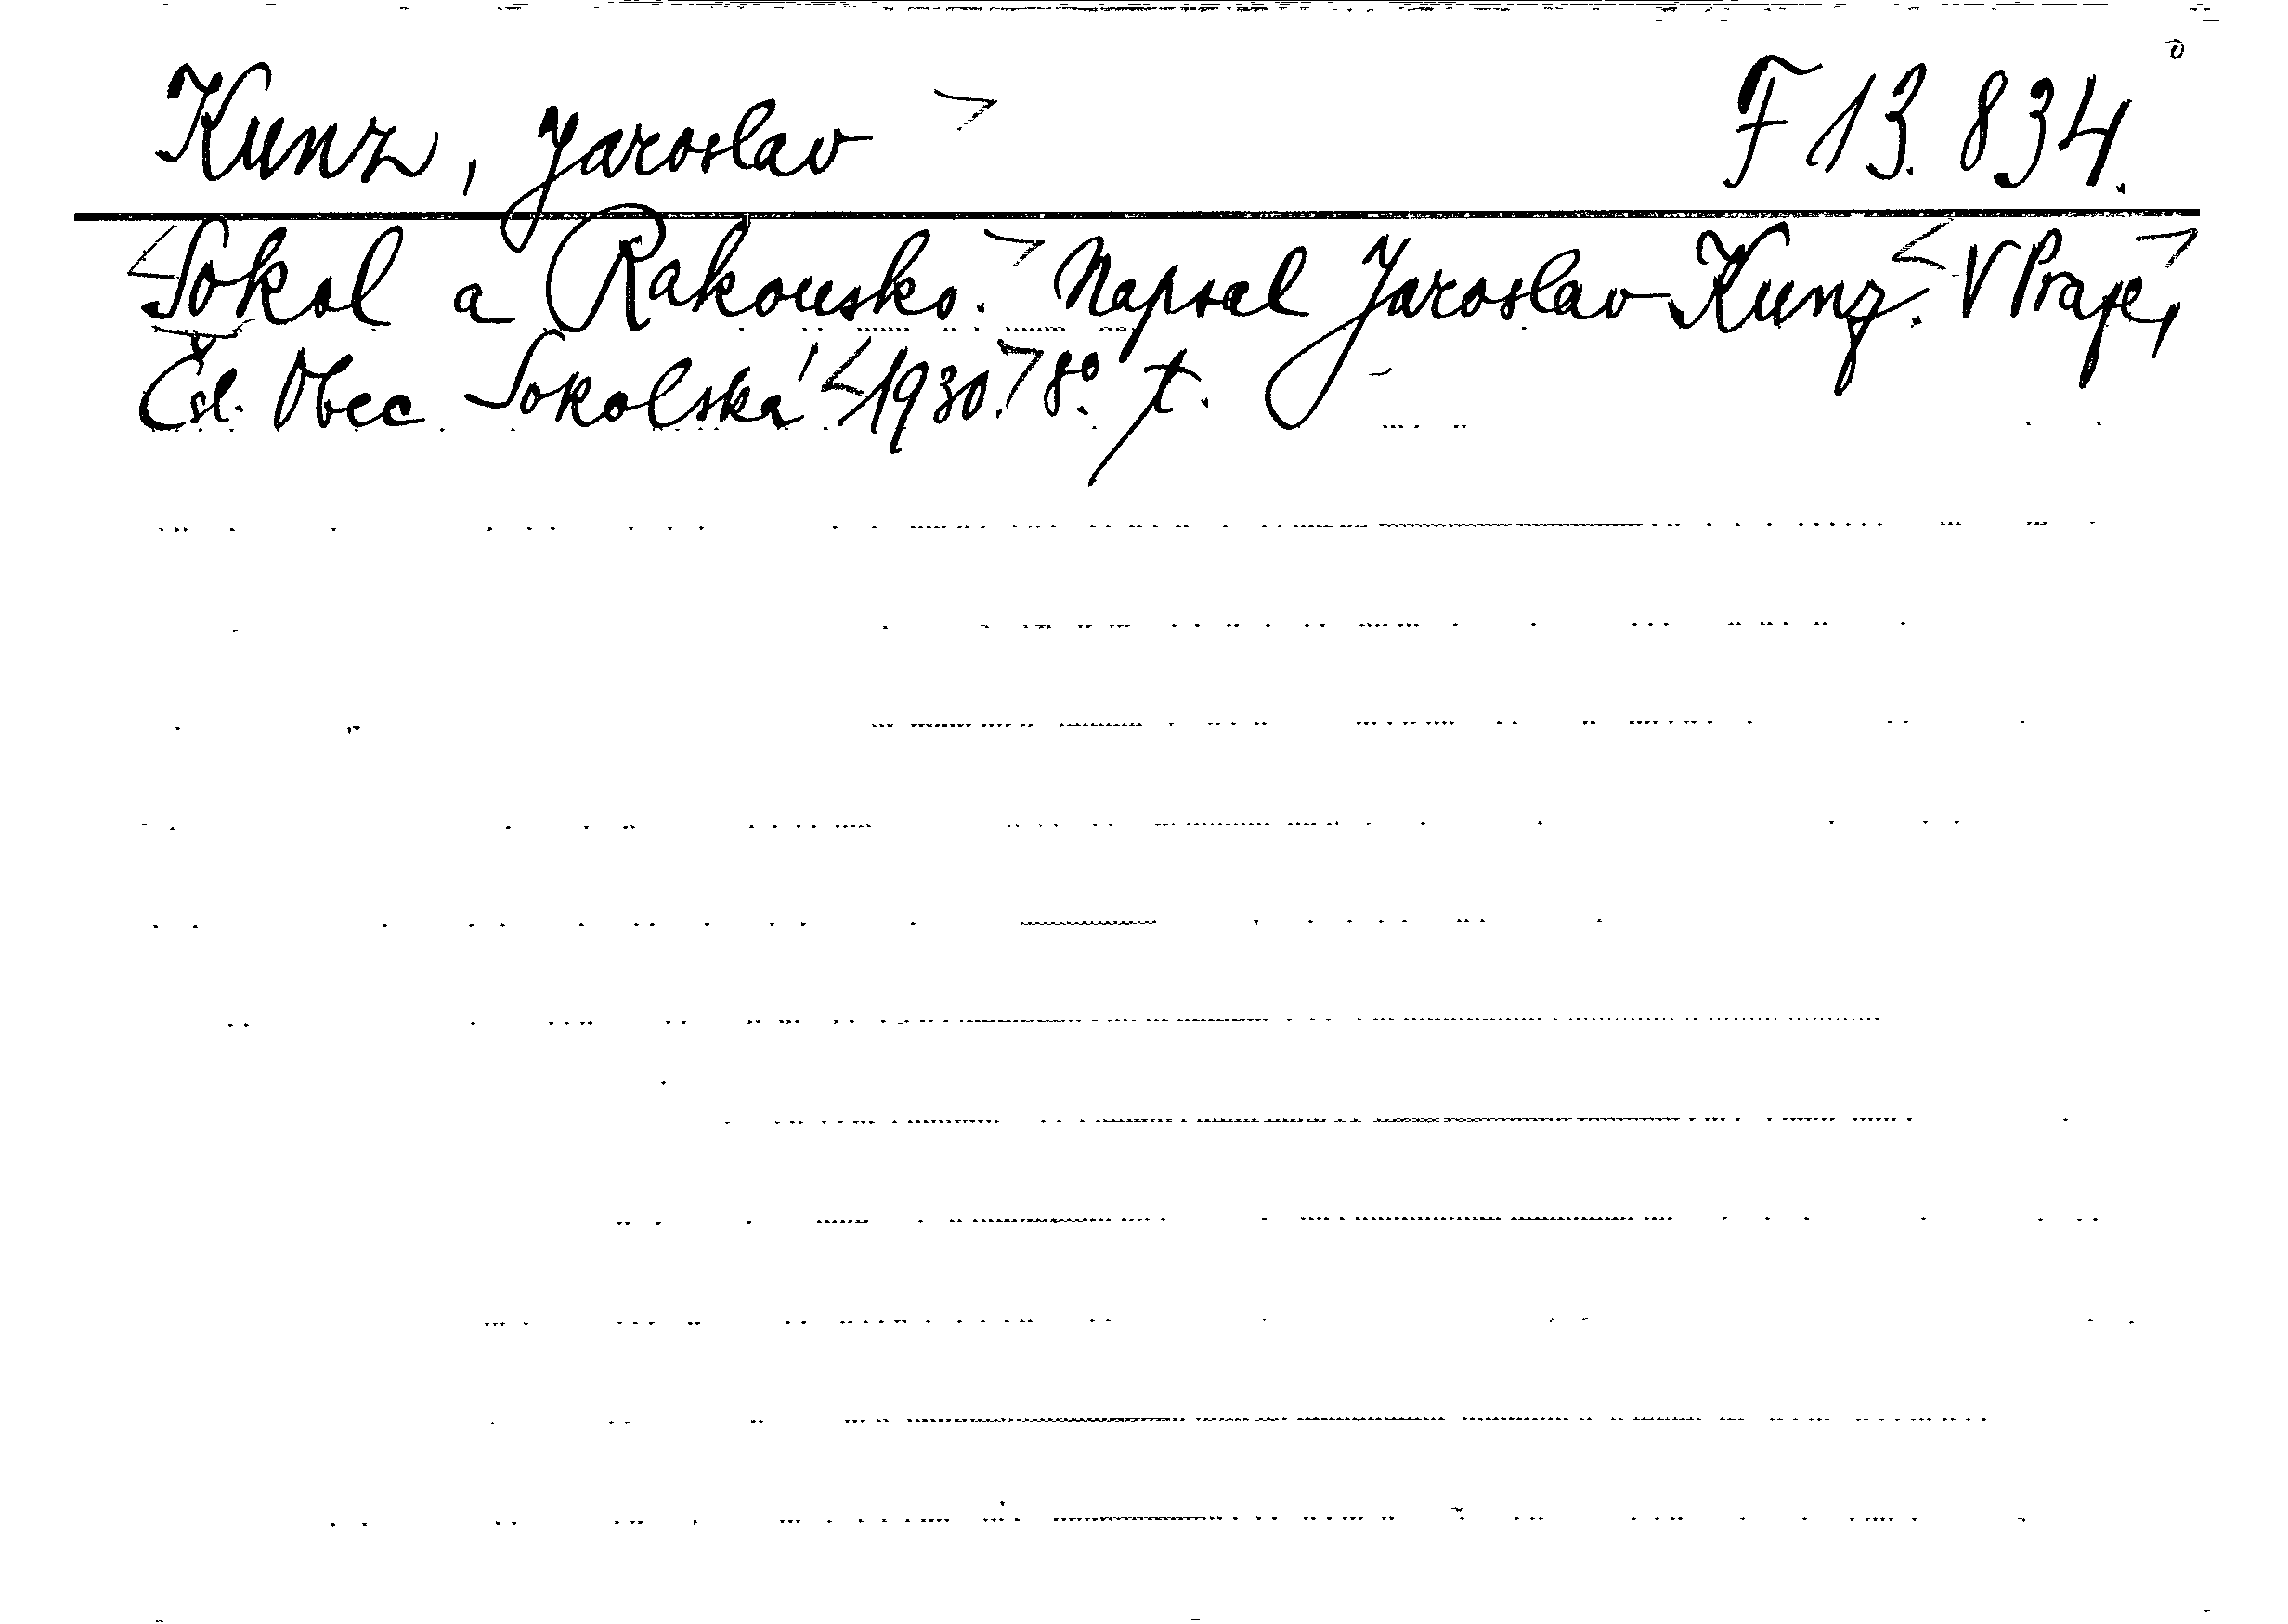 Kunz, Jaroslav > F 13.834.
<Sokol a Rakousko.> Napsal Jaroslav Kunz. <V Praze,>
Čsl. Obec Sokolská <1930.> 8° t.